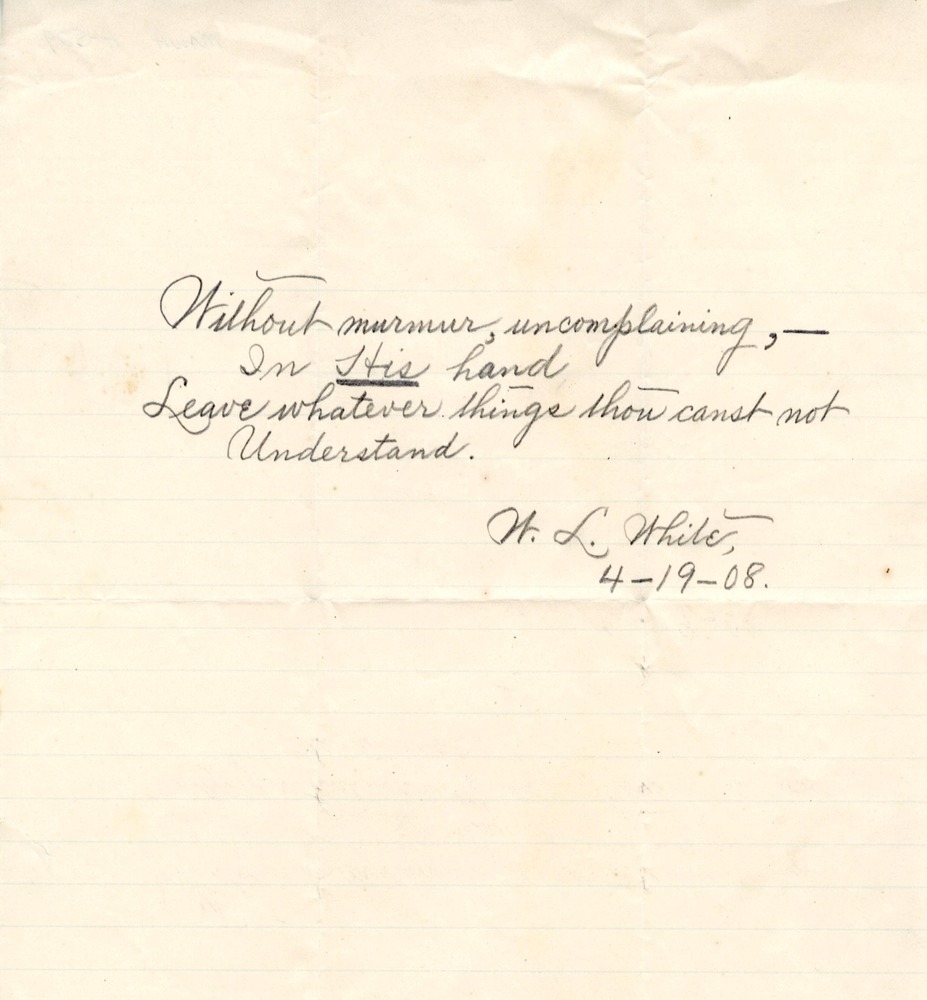 Without murmur, uncomplaining,—
In His hand
Leave whatever things thou canst not
Understand.
W. L. White,
4-19-08.